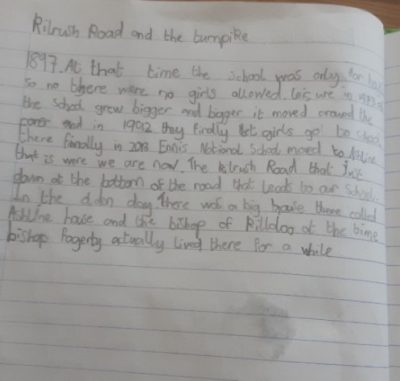 Kilrush Road and the turnpike
1897. At that time the school was only for
so no there were no girls allowed. in
the school grew bigger and bigger it moved around the
coner and in 1992 they findly let girls go to school
there finally in 2013 Ennis National School moved to Ashline
that is were we are now. The Kilrush Road that Just
down at the bottom of the road that leads to our school.
In the day there was a big there called
Ashline house and the bishop of Killaloo at the time
bishop Fogerty actually lived there for a while